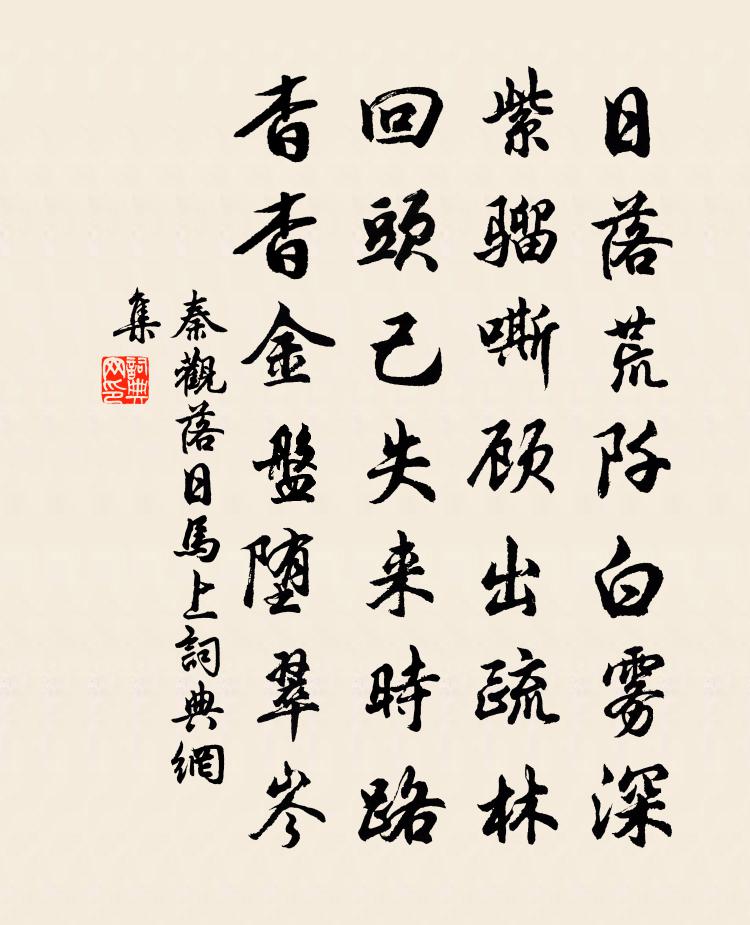 日落荒阡白雾深
紫骝嘶顾出疏林
回頭已失来時路
杳杳金盤堕翠岑
秦觀落日馬上詞典網
集
詞典
网印